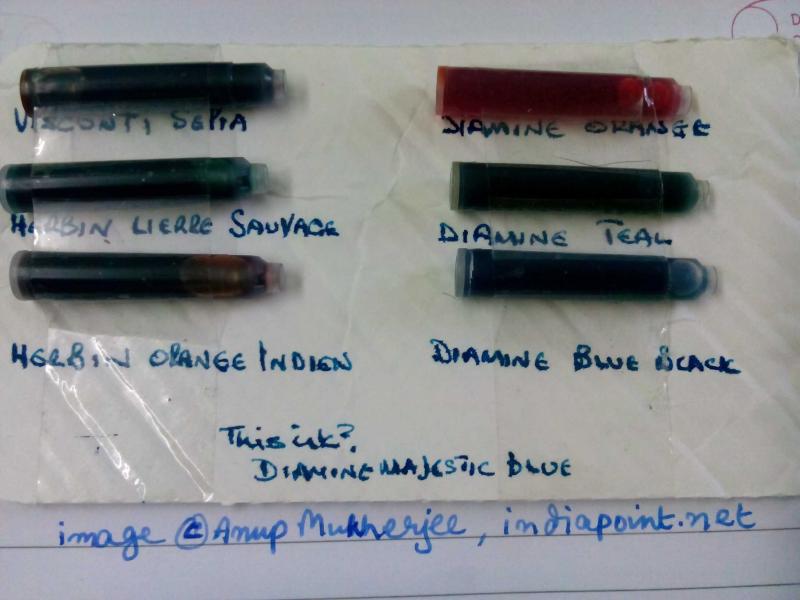 VISCONTI SEPIA
DIAMINE ORANGE
HERBIN LIERRE SAUVAGE
DIAMINE TEAL
HERBIN ORANGE INDIEN
DIAMINE BLUE BLACK
This ink?
DIAMINE MAJESTIC BLUE
image © Anup Mukherjee, indiapoint.net